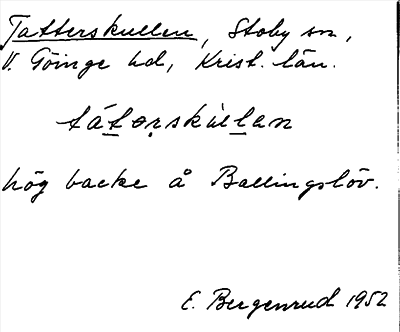 Tatterskullen, Stoby sn,
V. Göinge hd, Krist. län.
tát̲ərskùl̲an
hög backe å Ballingslöv.
E. Bergenrud 1952